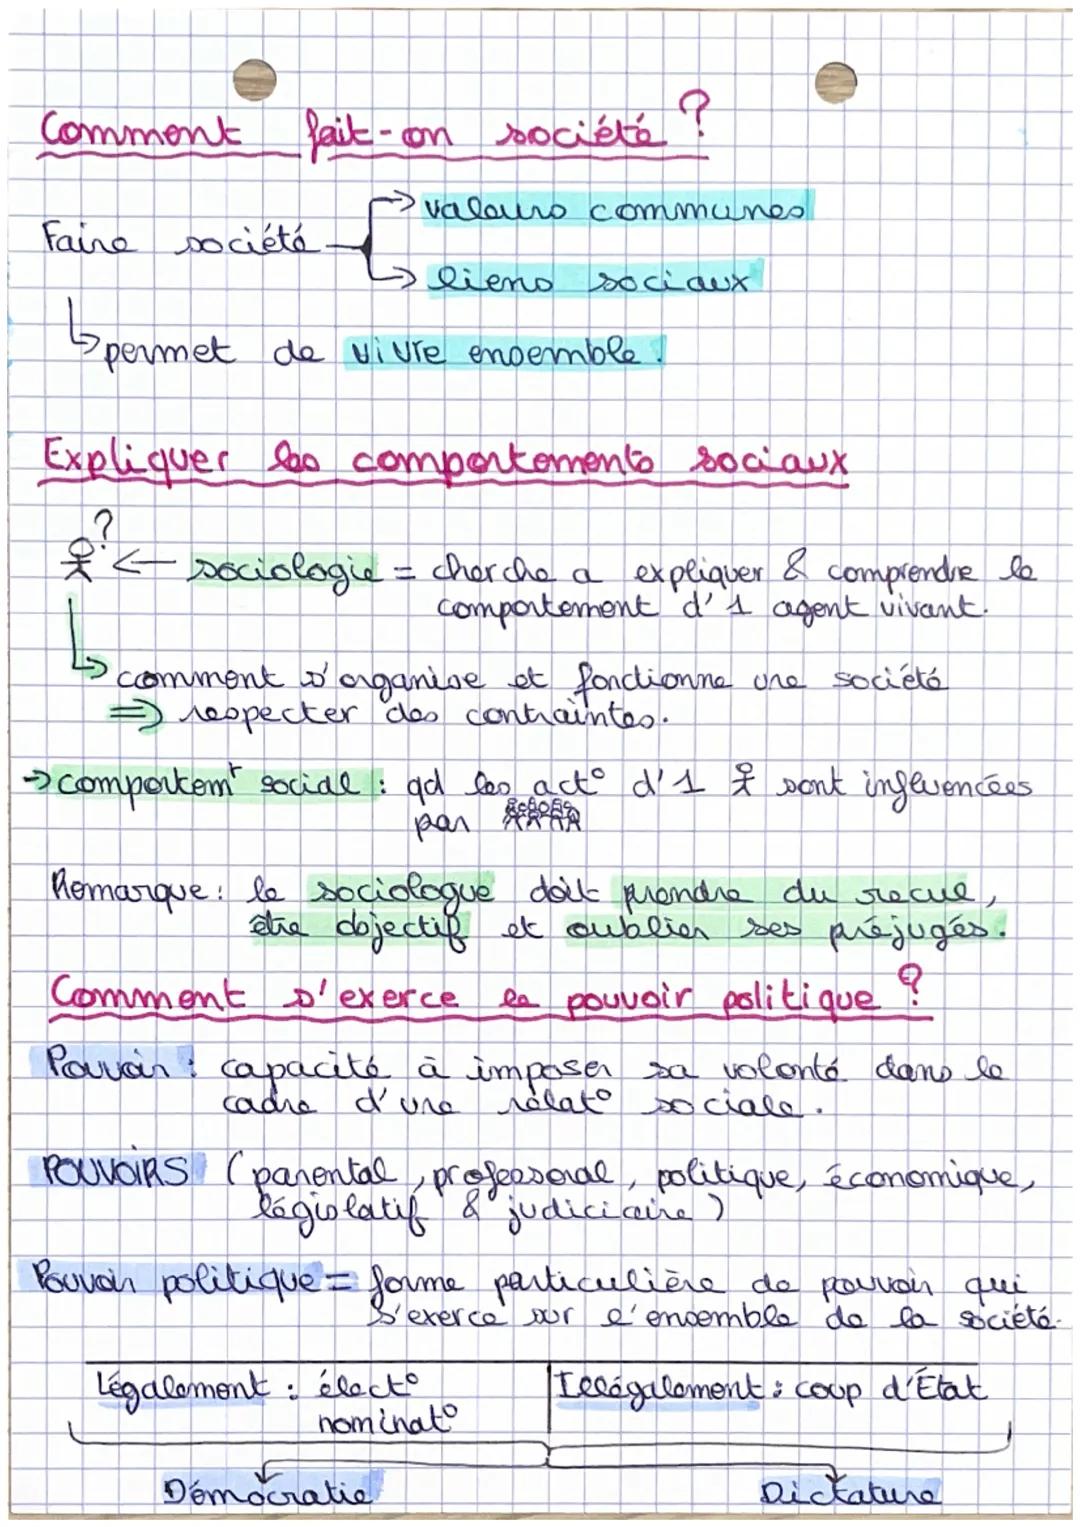 Comment fait-on société ?
→ valeurs communes
Faire société
→ liens sociaux
↳ permet de vivre ensemble.
Expliquer les comportements sociaux
?
← sociologie = cherche a expliquer & comprendre le
comportement d'1 agent vivant.
↳ comment s'organise et fonctionne une société
⇒ respecter des contraintes.
→ comportemt social : qd les act° d'1 sont influencées
par
Remarque : le sociologue doit prendre du recul,
être objectif et oublier ses préjugés.
Comment s'exerce le pouvoir politique ?
Pouvoir : capacité à imposer sa volonté dans le
cadre d'une relat° sociale.
POUVOIRS (parental, professoral, politique, économique,
législatif & judiciaire)
Pouvoir politique = forme particulière de pouvoir qui
s'exerce sur l'ensemble de la société.
Légalement : élect° Illégalement : coup d'État
nominat°
Démocratie Dictature